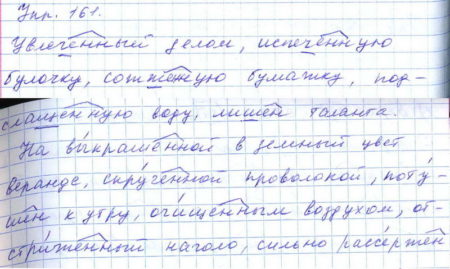 Упр. 161.
Увлечённый делом, испечённую
булочку, сожжёную бумажку, под-
слащённую воду, лишён таланта.
На выкрашенной в земный цвет
веранде, скрученной проволокой, поту-
шен к утру, очищенным воздухом, от-
стриженный наголо, сильно рассержен